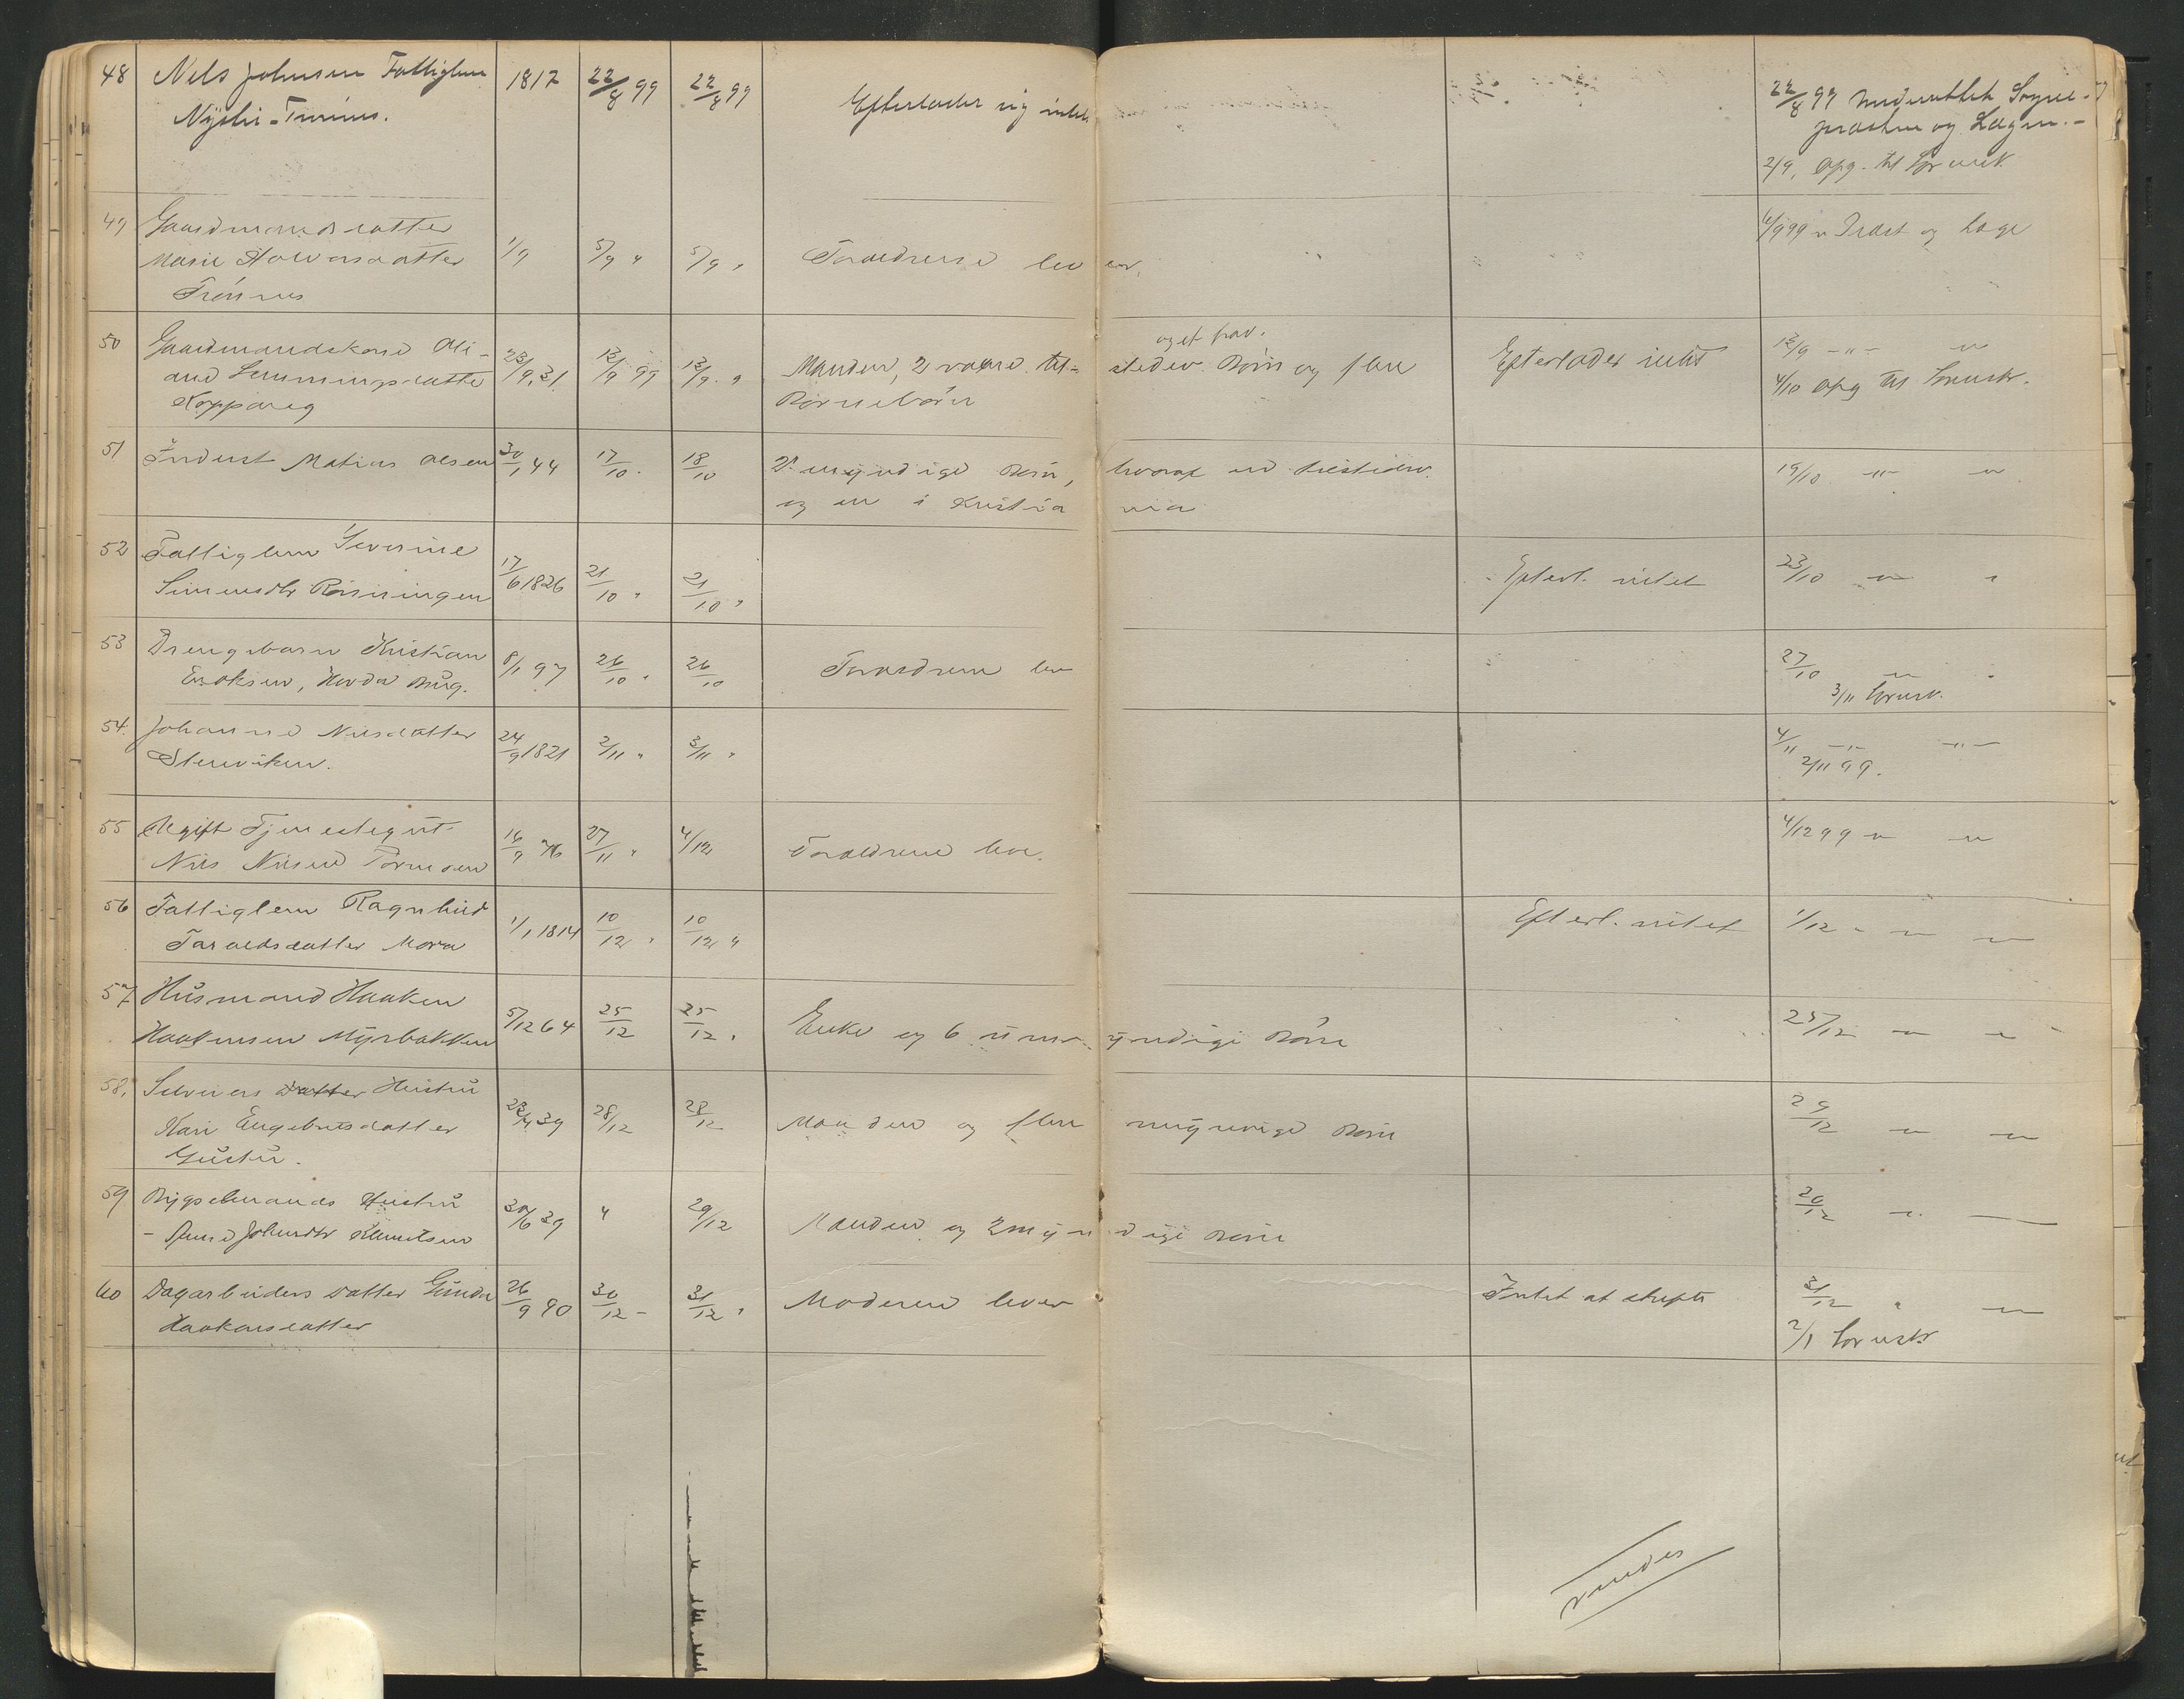 48 Nils Johnsen Fattiglem 1817 22/8 99 22/8 99 Efterlader sig intet 22/8 99 underrettet Sogne-
præsten og Lægen.-
2/9, opg. til
49 Gaardmandsdatter
Marie Halvorsdatter 1/9 5/9 " 5/9 " Forældrene lever. 6/9 99 " Præst og Læge
50 Gaardmandskone Oli-
23/9 31 12/9 99 13/9 " Manden, 2 voxne til- stedev. Børn og flere Efterlader intet 13/9 -"- "
Børnebørn 4/10 opg til
51 Inderst Matias Olsen 30/1 44 17/10 18/10 2 umyndige Børn, hvoraf en tilstedev. 19/10 -"- "
og en i Kristia nia
52 Fattiglem Severine
17/6 1826 21/10 " 21/10 " Efterl. intet 23/10 " "
53 Drengebarn Kristian
8/1 97 26/10 " 26/10 Forældrene lev 27/10 " "
3/11
54. Johanne Nilsdatter
Stenviken. 24/9 1821 2/11 " 3/11 " 4/11 -"- -"-
2/11 99.
55 Ugift Tjenestegut
Nils Nilsen 16/9 76 27/11 " 4/12 Forældrene lever. 4/12 99 " "
56 Fattiglem Ragnhild
Taraldsdatter Mora 1/1 1814 10/12 " 10/12 " Efterl. intet 1/12 " " "
57 Husmand Haaken
Haakensen Myrbakken 5/12 64 25/12 25/12 " Enke og 6 um- yndige Børn 25/12 " "
58. Selveiers Datter Hustru
Kari Engebretsdatter 39 28/12 28/12 Manden og flere myndige Børn 29/12 " "
59 Bygselmands Hustru
30/6 39 " 29/12 Manden og 2 myn- dige Børn "
60 Dagarbeiders Datter Gunda 26/9 90 30/12 - 31/12 " Moderen lever Intet at skifte 31/12 " "
Haakonsdatter 2/1
vendes